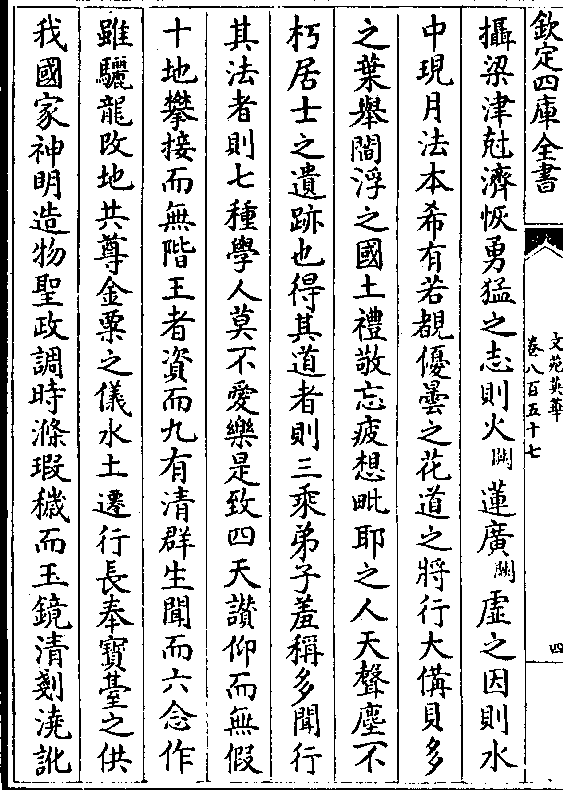 欽定四庫全書
文苑英華
卷八百五十七
四
攝梁津尅濟恢勇猛之志則火闕蓮廣闕虛之因則水
中現月法本希有若覩優曇之花道之將行大備貝多
之葉舉閻浮之國土禮敬忘疲想毗耶之人天聲塵不
朽居士之遺跡也得其道者則三乘弟子羞稱多聞行
其法者則七種學人莫不愛樂是致四天讃仰而無假
十地攀接而無階王者資而九有清群生聞而六念作
雖驪龍改地共尊金粟之儀水土遷行長奉寳臺之供
我國家神明造物聖政調時滌瑕穢而玉鏡清剗澆訛